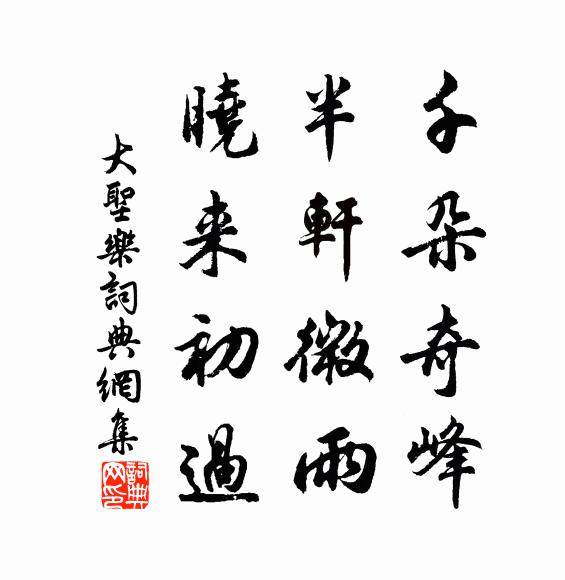 千朵奇峰
半軒微雨
曉来初過
大聖樂詞典網集
詞典网印